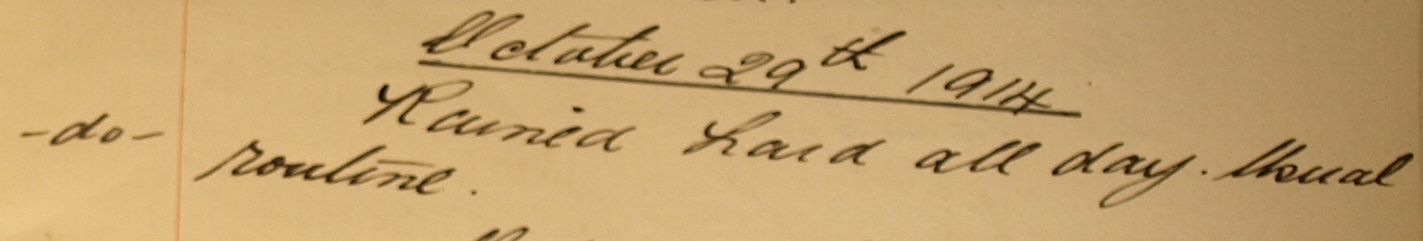 October 29th 1914
Rained hard all day. Usual
-do- routine.